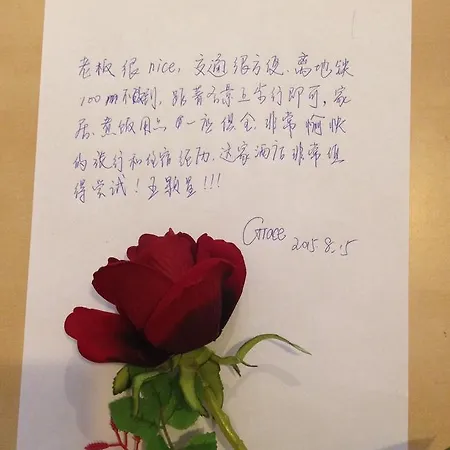 老板很nice，交通很方便、离地铁
100m不到，跟着名景点步行即可，家
居、煮饭用品一应俱全，非常愉快
的旅行和住宿经历，这家酒店非常值
得尝试！五颗星！！！
Grace
2015.8.15